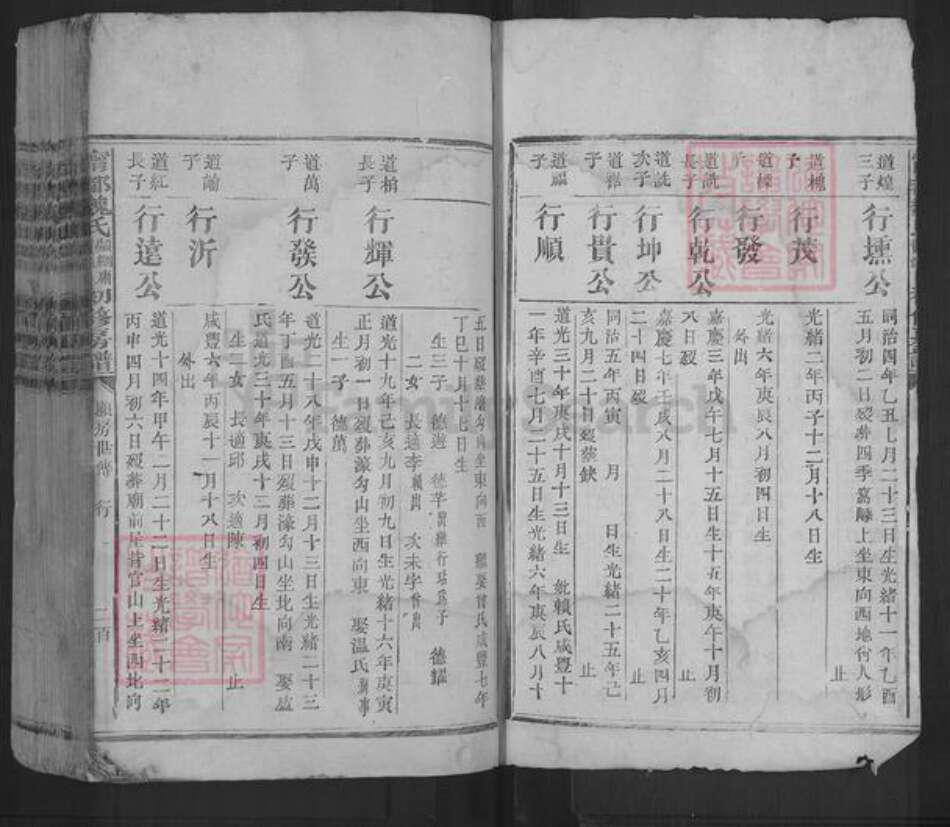 道煌
三子
行壎公
同治四年乙丑七月二十三日生光緒十一年乙酉
五月初二日歿葬四季嵩
上坐東向西地何人形
止
道
子
行茂
光緒二年丙子十二月十八日生
道
子
行發
光緒六年庚辰八月初四日生
外出
道詵
長子
行乾公
嘉慶三年戊午七月十五日生十五年庚午十月初
八日歿
止
道詵
次子
行坤公
嘉慶七年壬戌八月二十八日生二十年乙亥四月
二十四日歿
止
道
子
行貴公
同治五年丙寅 月 日生光緒二十五年己
亥九月二十日歿葬缺
止
道
子
行順
道光三十年庚戌十月十三日生 賴氏咸豐十
一年辛酉七月二十五日生光緒六年庚辰八月十
五日歿葬 勾山坐東向西 娶曾氏咸豐七年
丁巳十月十七日生
生三子 德
德耀
道
長子
行輝公
二女 長適李 次未字
道光十九年己亥九月初九日生光緒十六年庚寅
正月初一日歿葬濠勾山坐西向東 娶溫氏
生一子 德萬
道萬
子
行發公
道光二十八年戊申十二月十三日生光緒二十三
年丁酉五月十三日歿葬濠勾山坐北向南 娶
氏道光三十年庚戌十二月初四日生
生二女 長適邱 次適陳 止
道
子
行沂
咸豐六年丙辰十一月十八日生
外出
道紅
長子
行遠公
道光十四年甲午一月二十二日生光緒二十二年
丙申四月初六日歿葬廟前屋背官山上坐西北向
寧都魏氏 初修房譜 房世傳 行 二百
FamilySearch